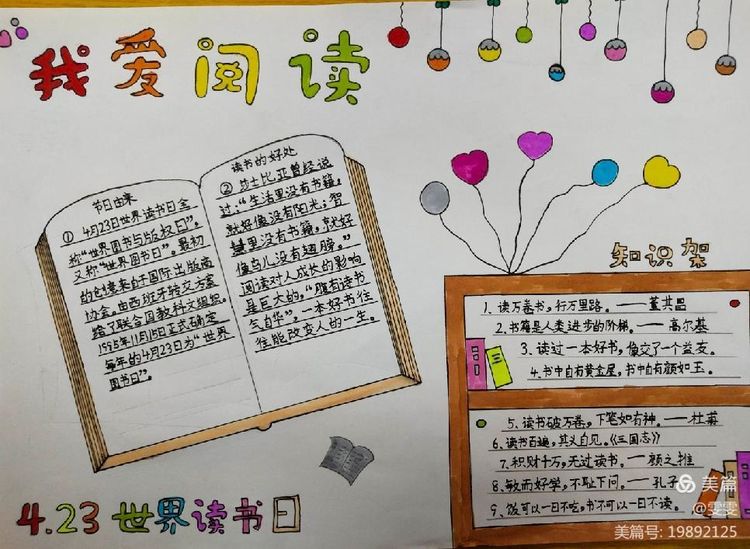 我爱阅读
节日由来
① 4月23日世界读书日全
称“世界图书与版权日”。
又称“世界图书日”。最初
的创意来自于国际出版商
协会。由西班牙转交方案
给了联合国教科文组织。
1995年11月15日正式确定
每年的4月23日为“世界
图书日”。
读书的好处
② 莎士比亚曾经说
过:“生活里没有书籍,
就好像没有阳光;智
慧里没有书籍,就好
像鸟儿没有翅膀。”
阅读对人成长的影响
是巨大的,“腹有读书
气自华”。一本好书往
往能改变人的一生。
知识架
1、读万卷书,行万里路。——董其昌
2、书籍是人类进步的阶梯。——高尔基
3、读过一本好书,像交了一个益友。
4、书中自有黄金屋,书中自有颜如玉。
三
5、读书破万卷,下笔如有神。——杜甫
6、读书百遍,其义自见。《三国志》
7、积财千万,无过读书。——颜之推
8、敏而好学,不耻下问。——孔子
9、饭可以一日不吃,书不可以一日不读。
4.23世界读书日
美篇
@雯雯
美篇号: 19892125